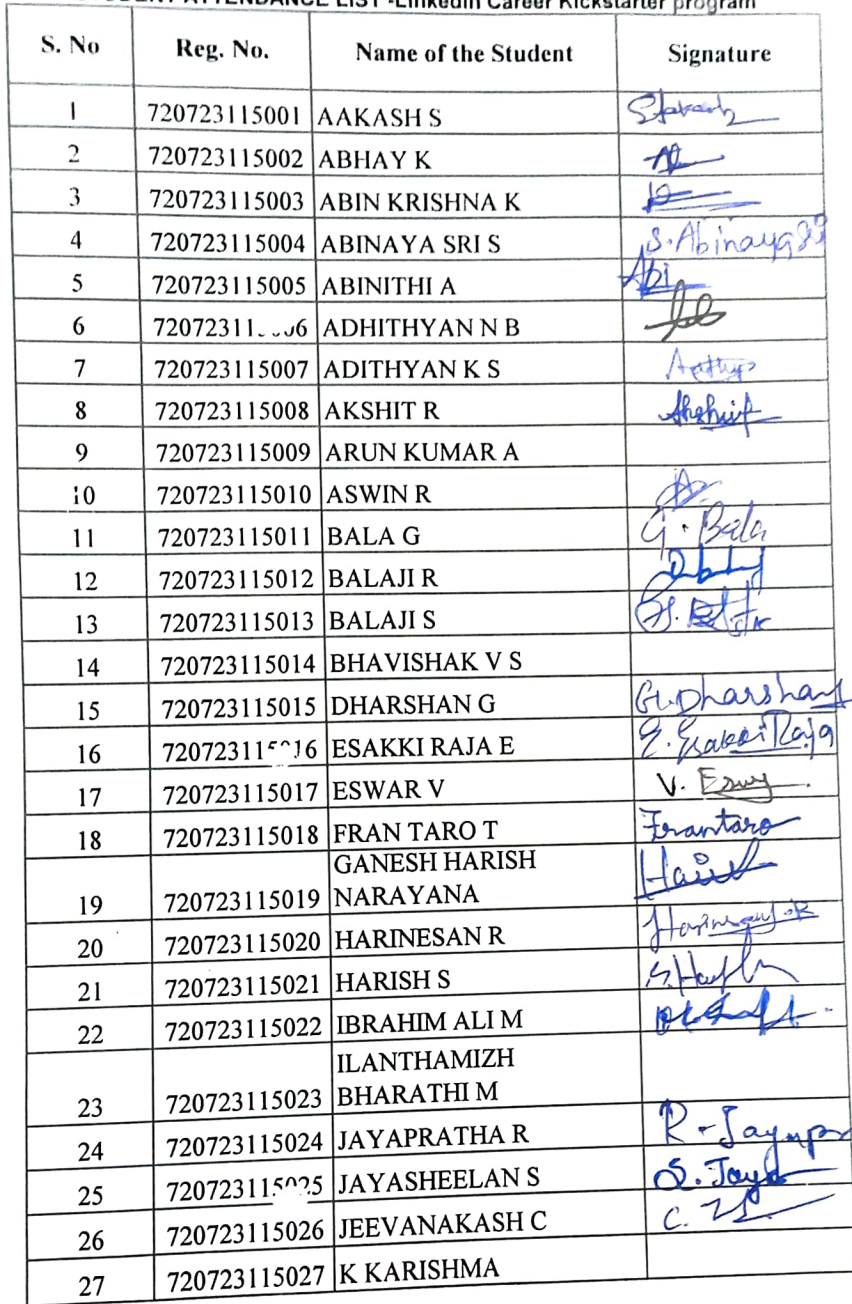 ATTENDANCE LIST -Linkedin Career Kickstarter program
S. No Reg. No. Name of the Student Signature
1 720723115001 AAKASH S
2 720723115002 ABHAY K
3 720723115003 ABIN KRISHNA K
4 720723115004 ABINAYA SRI S S. Abinaya Sri
5 720723115005 ABINITHI A Abi
6 ADHITHYAN N B
7 720723115007 ADITHYAN K S
8 720723115008 AKSHIT R
9 720723115009 ARUN KUMAR A
10 720723115010 ASWIN R
11 720723115011 BALA G G. Bala
12 720723115012 BALAJI R
13 720723115013 BALAJI S
14 720723115014 BHAVISHAK V S
15 720723115015 DHARSHAN G G. Dharshan
16 ESAKKI RAJA E E. Esakki Raja
17 720723115017 ESWAR V V.
18 720723115018 FRAN TARO T Frantaro
GANESH HARISH
19 720723115019 NARAYANA
20 720723115020 HARINESAN R
21 720723115021 HARISH S
22 720723115022 IBRAHIM ALI M
ILANTHAMIZH
23 720723115023 BHARATHI M
24 720723115024 JAYAPRATHA R
25 JAYASHEELAN S
26 720723115026 JEEVANAKASH C C.
27 720723115027 K KARISHMA